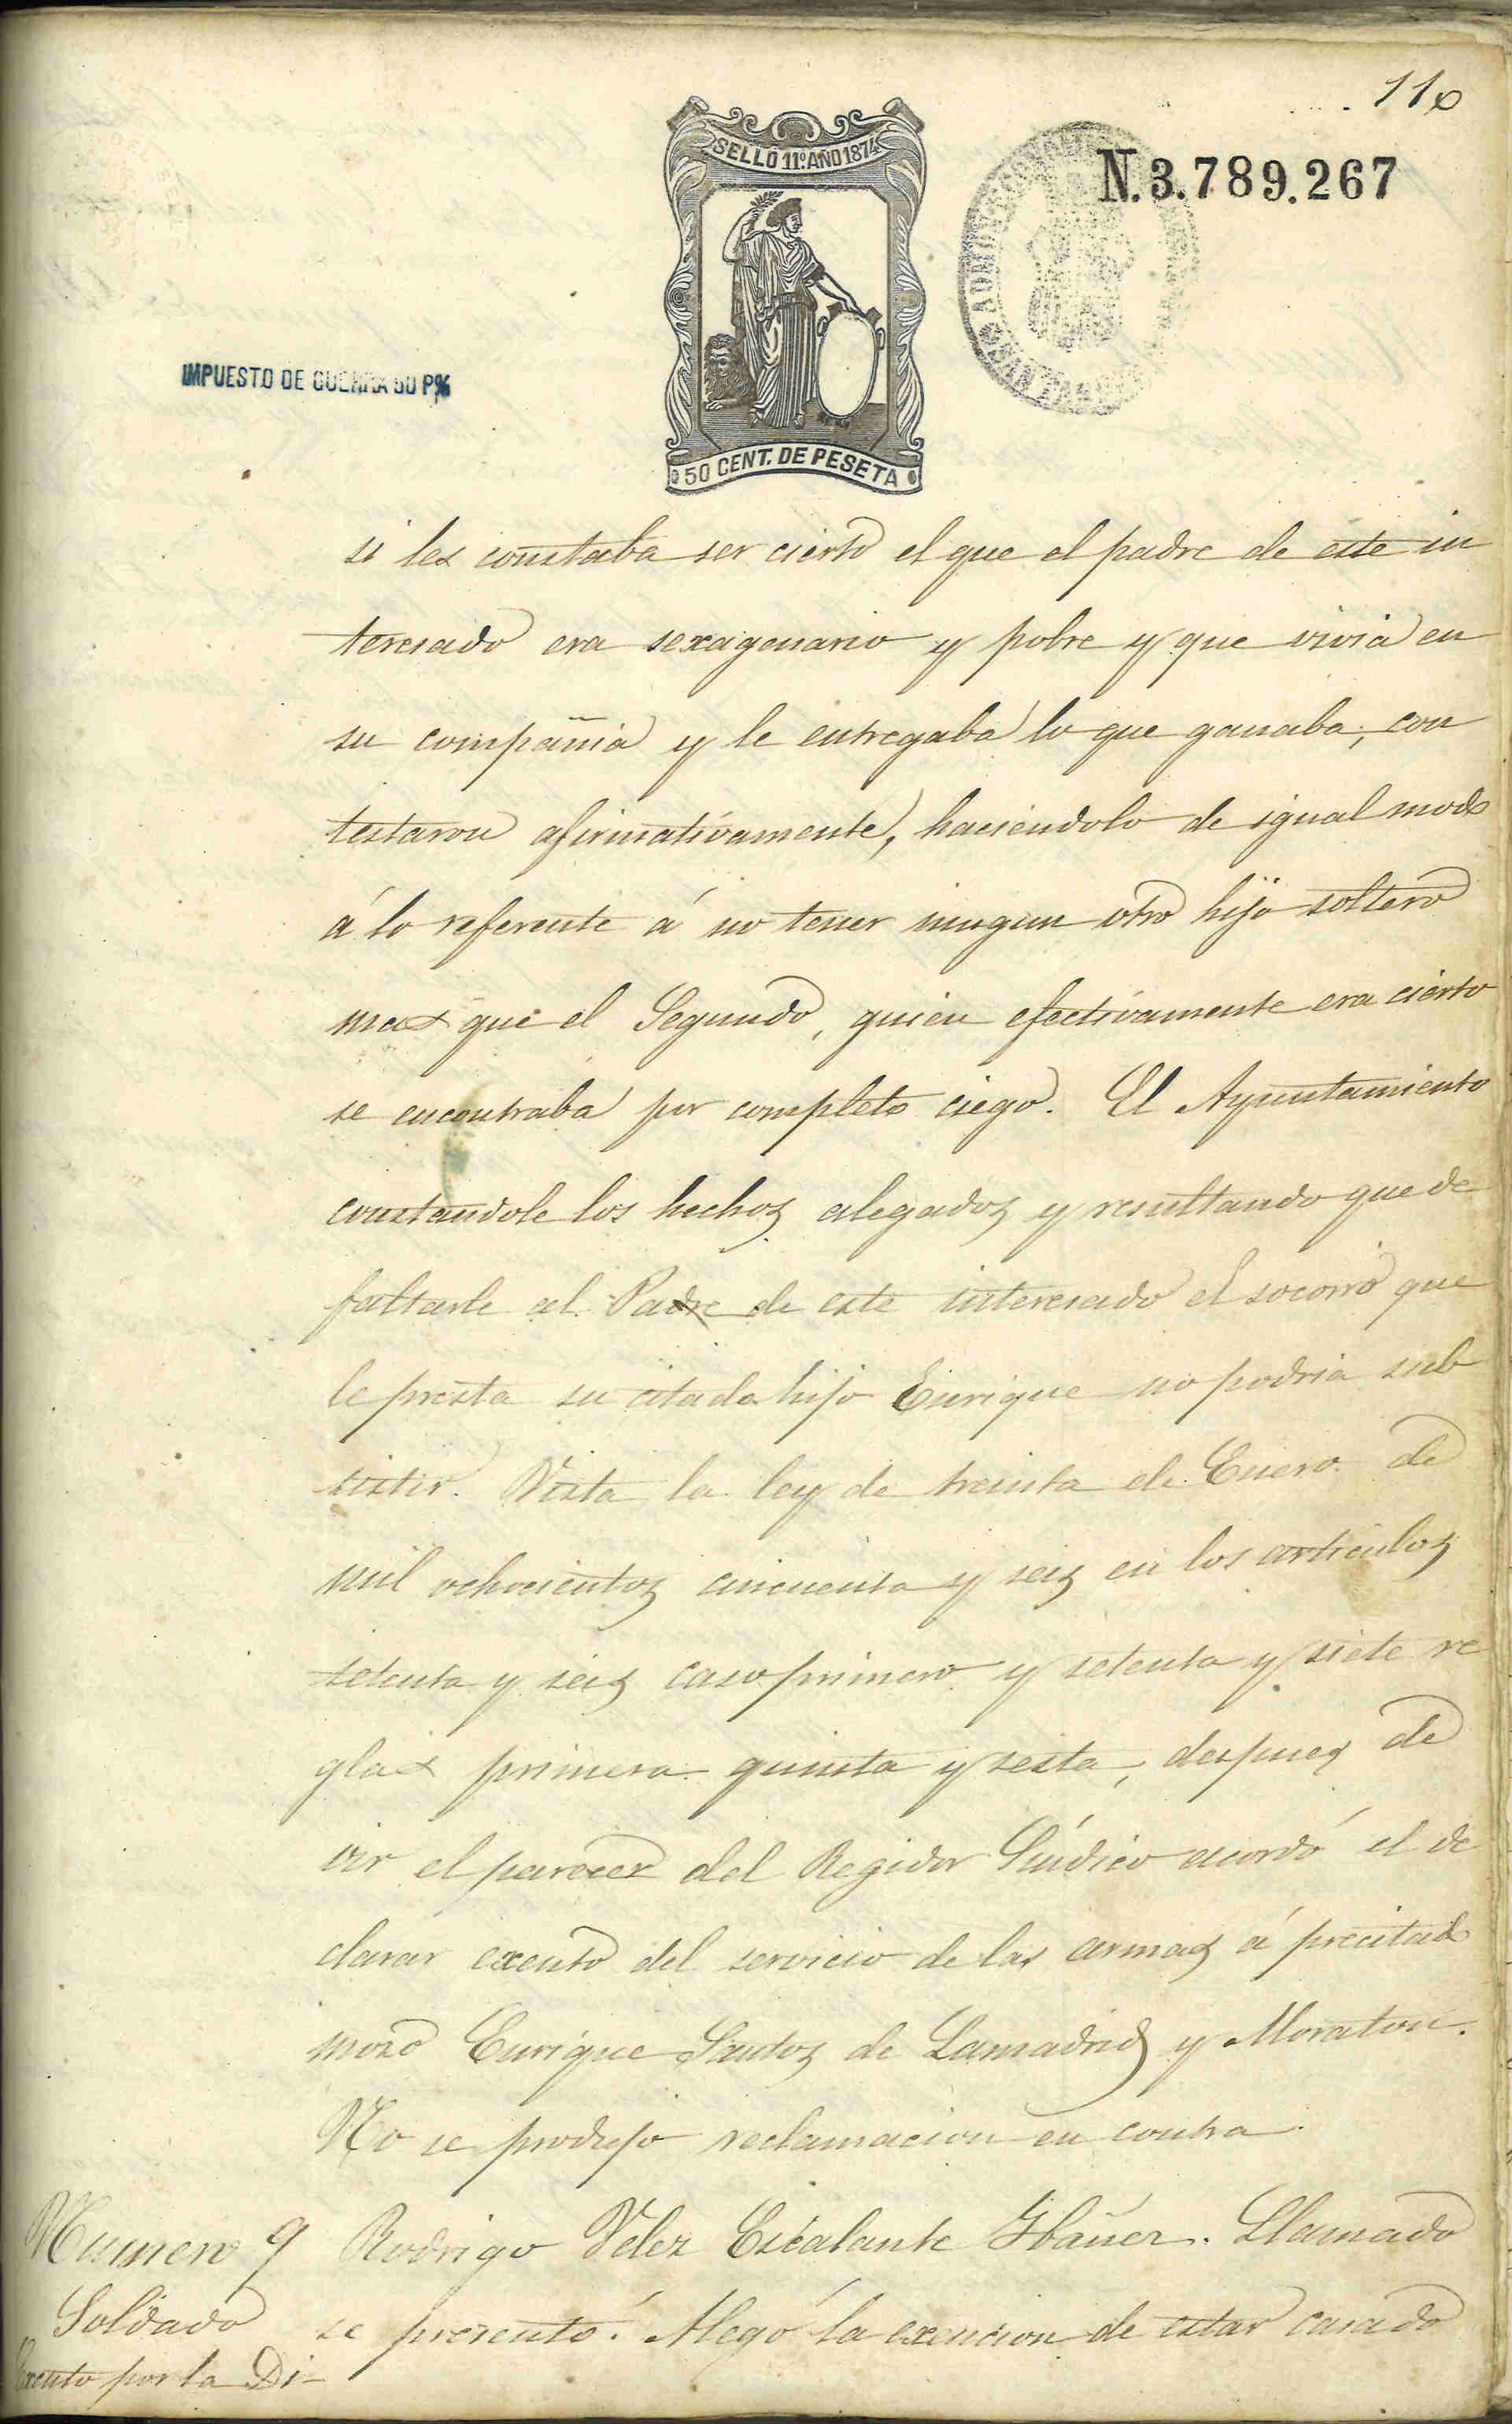 110
SELLO 11º AÑO 1874
N.3.789.267
IMPUESTO DE GUERRA 50 P%
50 CENT. DE PESETA
si les constaba ser cierto el que el padre de este in
teresado era sexagenario y pobre y que vivia en
su compañia y le entregaba lo que ganaba; con
testaron afirmativamente, haciendolo de igual modo
á lo referente á no tener ningun otro hijo soltero
mas que el Segundo, quien efectivamente era cierto
se encontraba por completo ciego. El Ayuntamiento
constandole los hechos alegados y resultando que de
faltarle al Padre de este interesado el socorro que
le presta su citado hijo Enrique no podria sub
sistir. Vista la ley de treinta de Enero de
mil ochocientos cincuenta y seis en los articulos
setenta y seis caso primero y setenta y siete re
glas primera quinta y sesta, despues de
oir el parecer del Regidor Síndico acordó el de
clarar exento del servicio de las armas á precitado
mozo Enrique Santos de Lamadrid y Moraton.
No se produjo reclamacion en contra.
Numero 9 Rodrigo Velez Escalante Ibáñez. Llamado
Soldado se presentó. Alegó la exencion de estar casado
Exento por la Di-